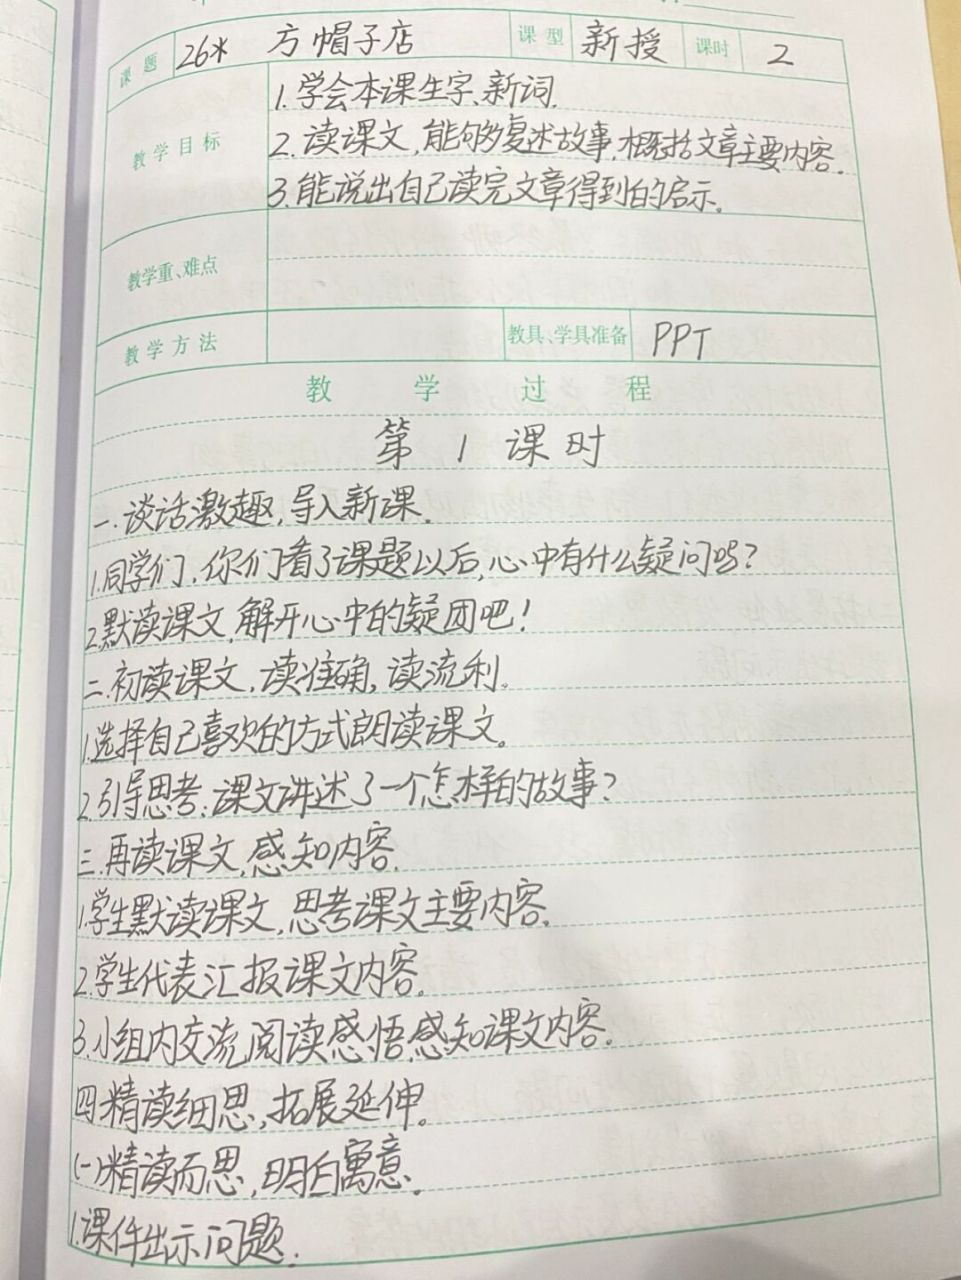 课题 26* 方帽子店 课型 新授 课时 2
教学目标
1.学会本课生字、新词.
2.读课文,能够复述故事.概括文章主要内容.
3.能说出自己读完文章得到的启示。
教学重、难点
教学方法 教具、学具准备 PPT
教学过程
第1课时
一.谈话激趣,导入新课.
1.同学们,你们看了课题以后,心中有什么疑问吗?
2.默读课文,解开心中的疑团吧!
二.初读课文,读准确,读流利。
1.选择自己喜欢的方式朗读课文。
2.引导思考:课文讲述了一个怎样的故事?
三.再读课文,感知内容.
1.学生默读课文,思考课文主要内容.
2.学生代表汇报课文内容.
3.小组内交流阅读感悟,感知课文内容.
四.精读细思,拓展延伸。
(一)精读而思,明白寓意.
1.课件出示问题.